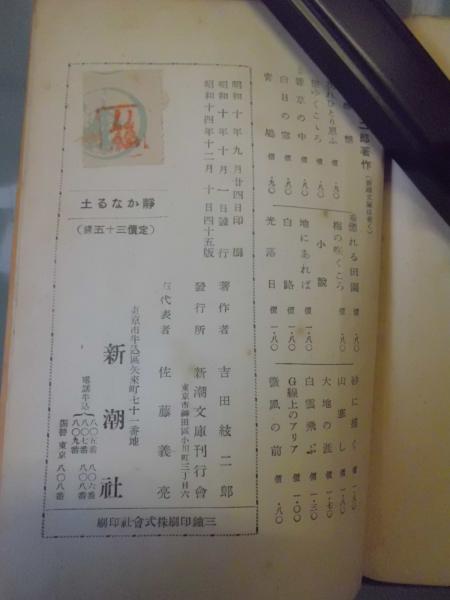 二郎著作（新潮文庫は省く）
砂に描く
山恋し
大地の涯 価 一・七〇
白雲飛ぶ 価 一・三〇
G線上のアリア 価 一・〇〇
微風の前 価 ・八〇
る田園 価 ・八〇
梅の咲くころ
小説
地にあれば 価 一・八〇
白路 価 一・八〇
光落日 価 一・八〇
ひとり思ふ 価
ゆくこゝろ
草の中 価
白日の窓 価 ・八〇
青鳩 価 ・九〇
昭和十年九月廿四日印刷
昭和十年十月一日発行
昭和十四年十二月十日四十五版
静かなる土
（定價三十五錢）
著作者 吉田絃二郎
發行所 新潮文庫刊行會
東京市神田區小川町三丁目六
代表者 佐藤義亮
東京市牛込區矢來町七十一番地
新潮社
電話牛込
八〇五番 八〇六番
八〇七番 八〇八番
八〇九番
振替東京 八〇八番
三鐘印刷株式會社印刷